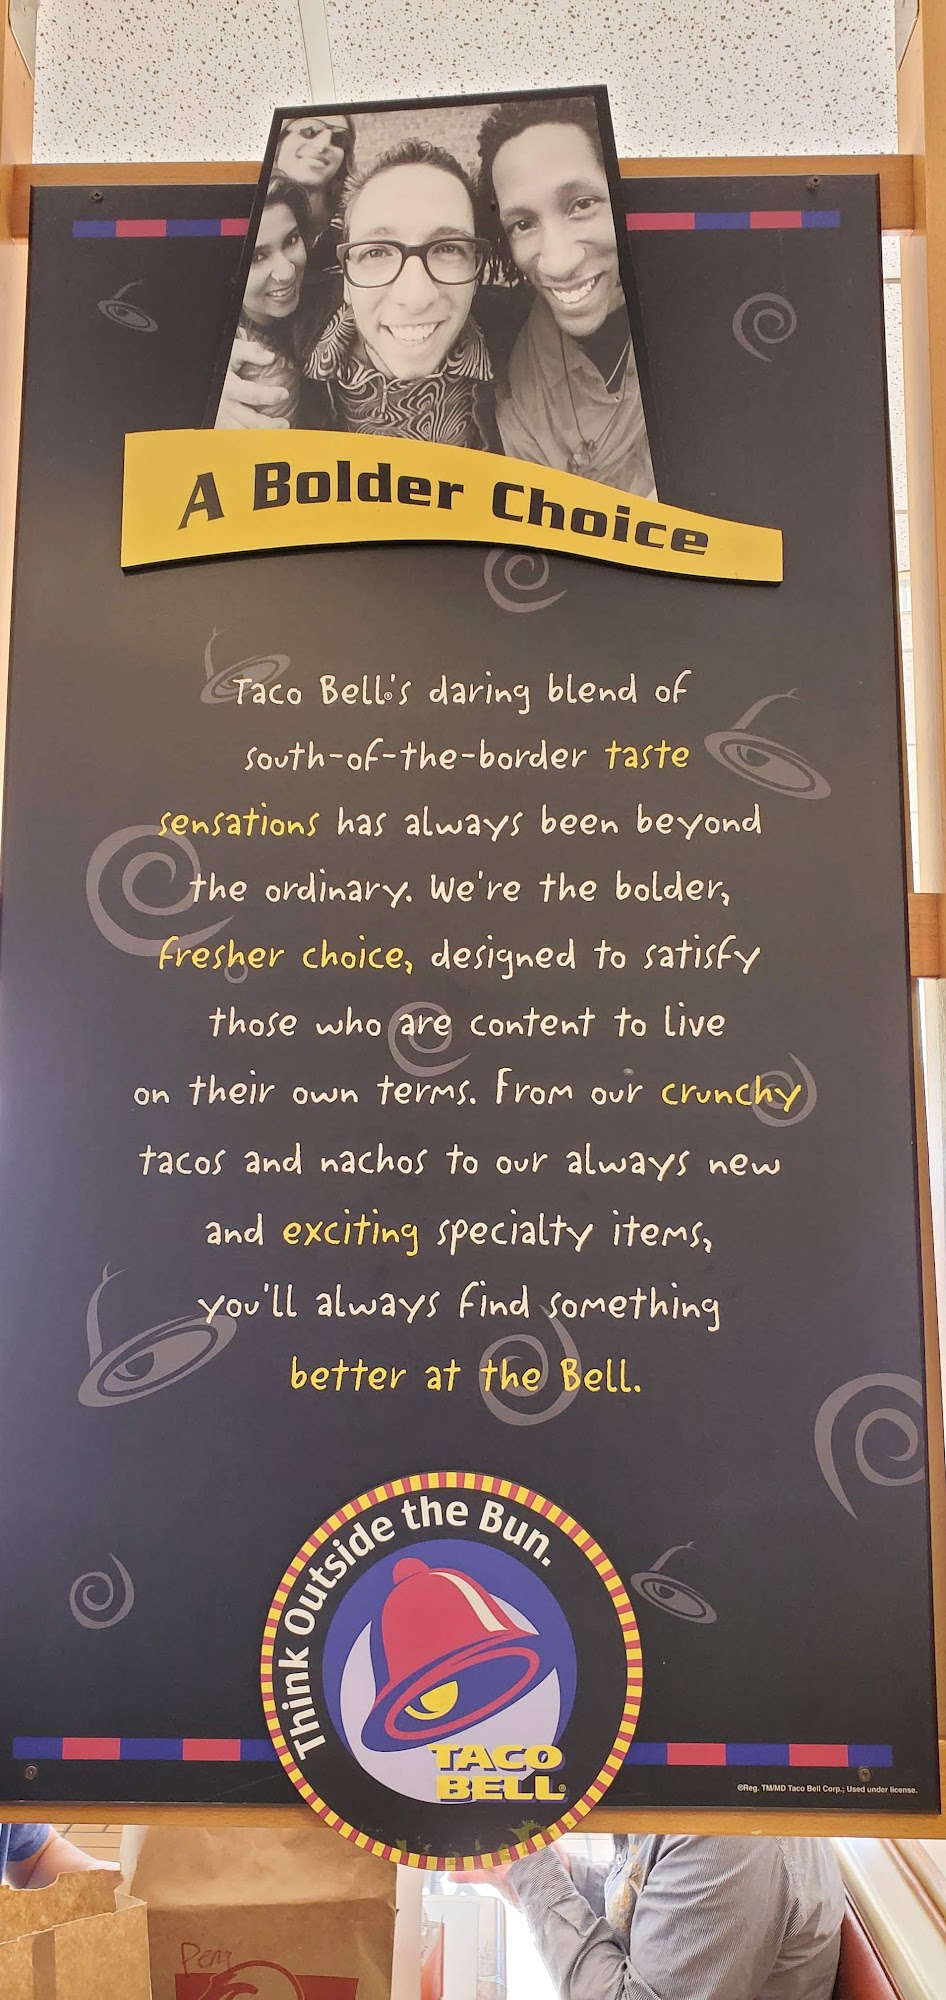 A Bolder Choice
Taco Bell®'s daring blend of
south-of-the-border taste
sensations has always been beyond
the ordinary. We're the bolder,
fresher choice, designed to satisfy
those who are content to live
on their own terms. From our crunchy
tacos and nachos to our always new
and exciting specialty items,
you'll always find something
better at the Bell.
Think Outside the Bun.
TACO
BELL®
®Reg. TM/MD Taco Bell Corp.; Used under license.
Peng